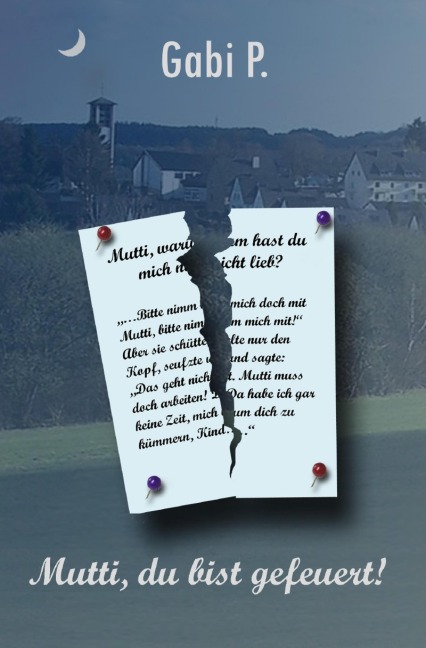 Gabi P.
Mutti, warum hast du
mich nicht lieb?
„…Bitte nimm mich doch mit
Mutti, bitte nimm mich mit!“
Aber sie schüttelte nur den
Kopf, seufzte und sagte:
„Das geht nicht. Mutti muss
doch arbeiten! Da habe ich gar
keine Zeit, mich um dich zu
kümmern, Kind….“
Mutti, du bist gefeuert!